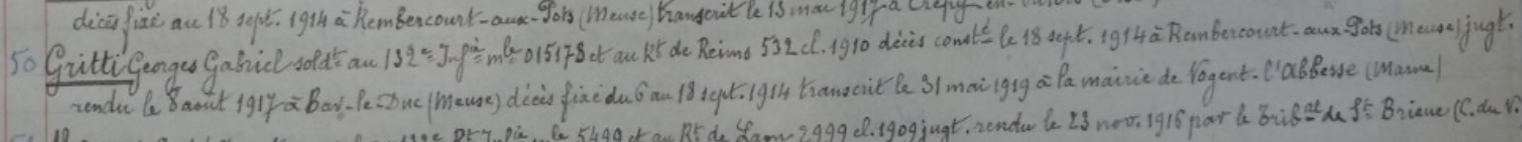 décès fixé au 18 sept. 1914 à Rembercourt-aux-Pots (Meuse) transcrit le 13 mai 1917 à Crépy-en-
50 Gritti Georges Gabriel soldt au 132e Infie mle 015178 et au Rt de Reims 532 cl. 1910 décès consté le 18 sept. 1914 à Rembercourt-aux-Pots (Meuse) jugt.
rendu le 8 aout 1917 à Bar-le-Duc (Meuse) décès fixé du 6 au 18 sept. 1914 transcrit le 31 mai 1919 à la mairie de Nogent-l'Abbesse (Marne)
Rt Infie 5499 et au Rt de Laon 2999 cl. 1909 jugt. rendu le 23 nov. 1916 par le Tribal de St Brieuc (C. du N.